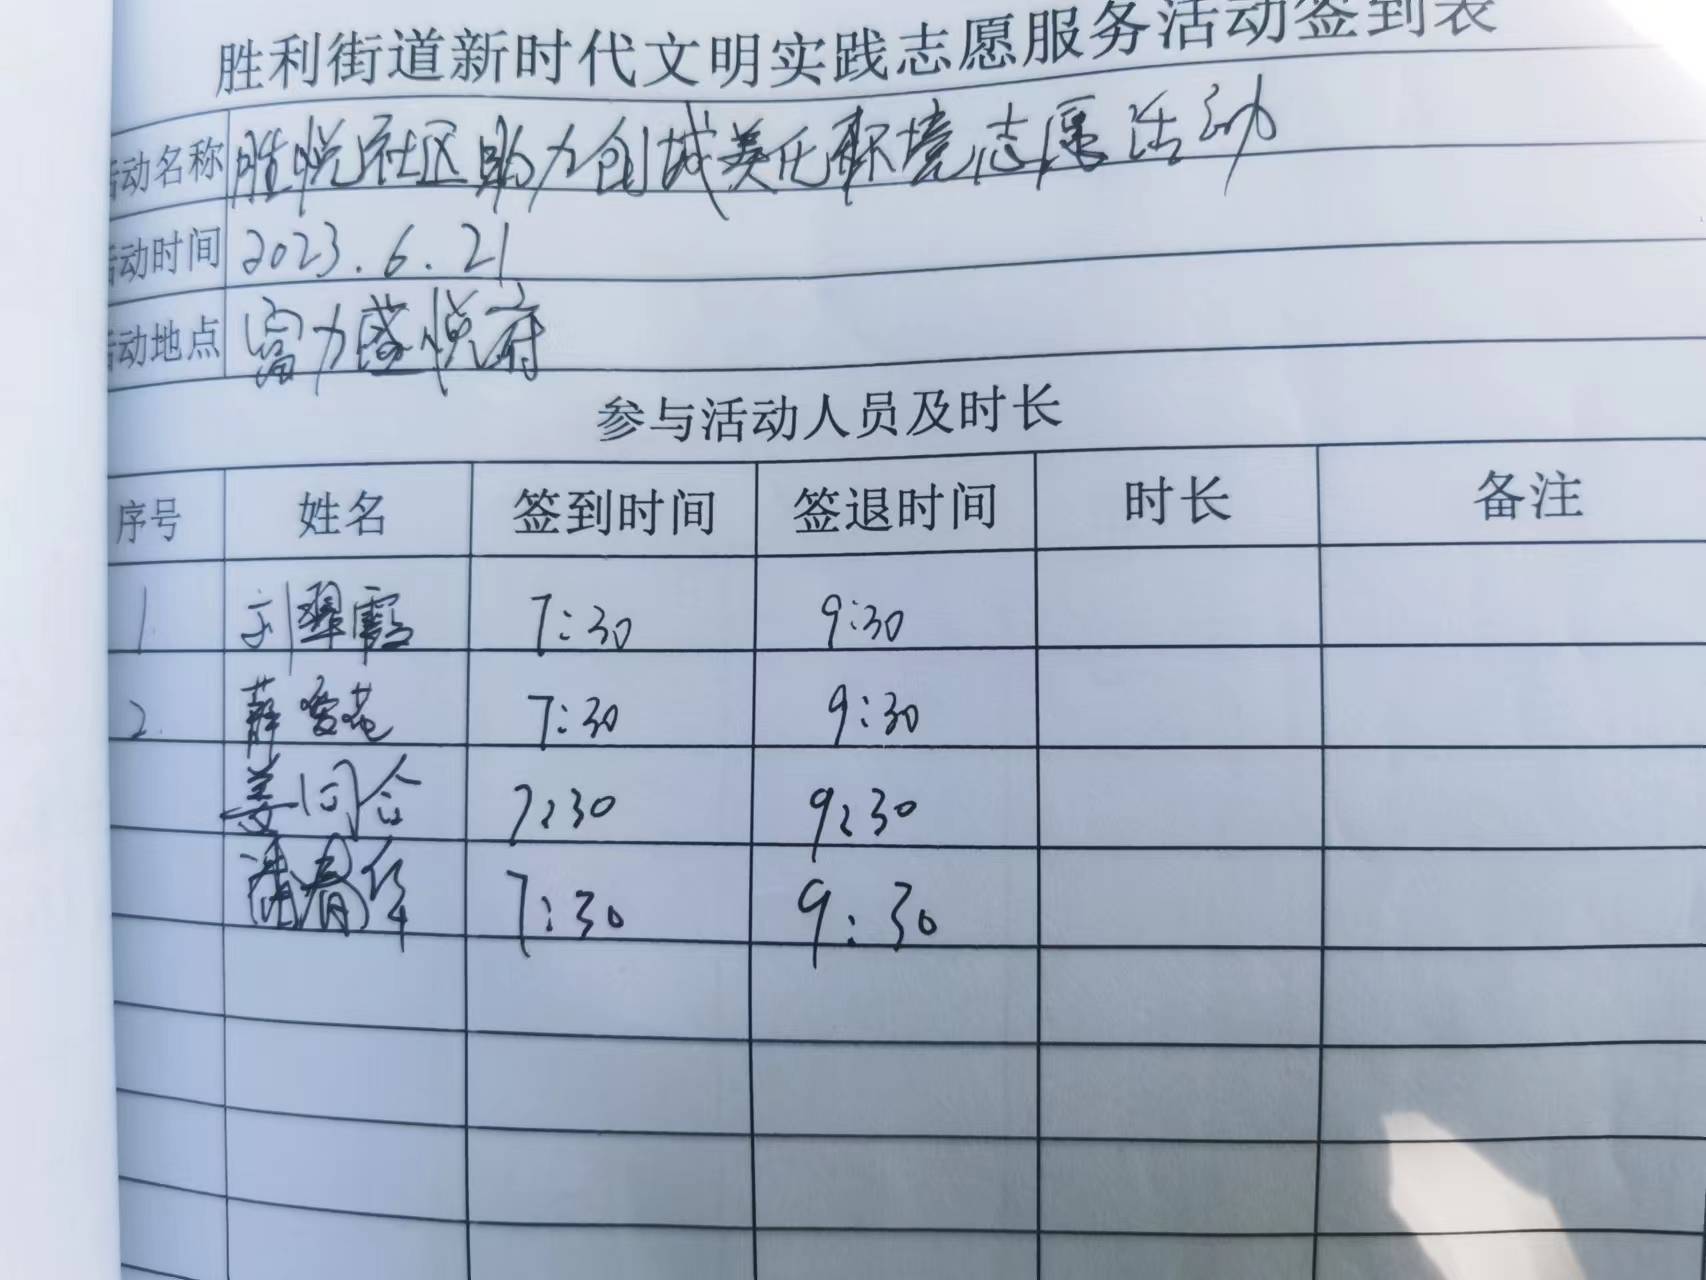 胜利街道新时代文明实践志愿服务活动签到表
活动名称 胜悦社区助力创城美化环境志愿活动
活动时间 2023.6.21
活动地点 富力盛悦府
参与活动人员及时长
序号 姓名 签到时间 签退时间 时长 备注
1. 刘翠霞 7:30 9:30
2. 薛雪花 7:30 9:30
姜同合 7:30 9:30
潘春华 7:30 9:30